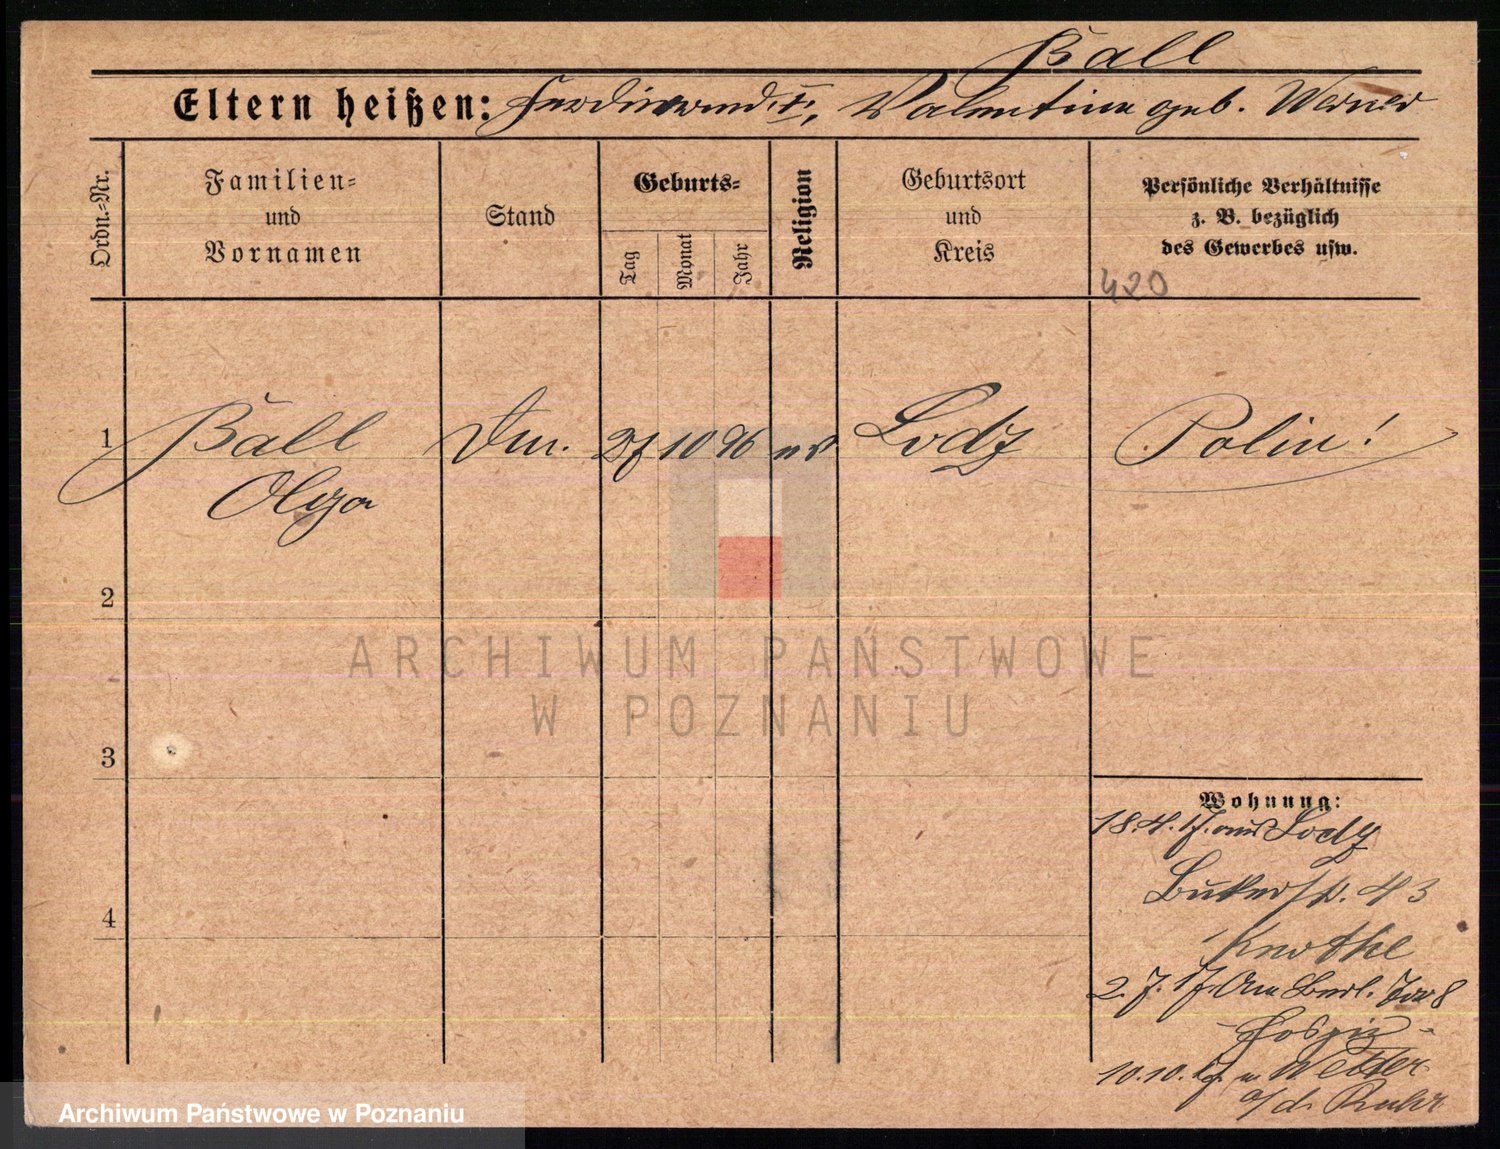 Ball
Eltern heißen: Ferdinand, Valentine geb. Werner
Ordn.-Nr.
Familien-
und
Vornamen
Stand
Geburts-
Tag
Monat
Jahr
Religion
Geburtsort
und
Kreis
Persönliche Verhältnisse
z. B. bezüglich
des Gewerbes usw.
420
1 Ball 27 10 96 Lodz Polin!
Olga
2
ARCHIWUM PAŃSTWOWE
W POZNANIU
3
Wohnung:
18.4.17. aus Lodz
Bukerstr. 43
4
Knothe
2. 7. 17. Am Berl. Tor 8
Hospiz
10.10.17. n. Wetter
a/d. Ruhr
Archiwum Państwowe w Poznaniu